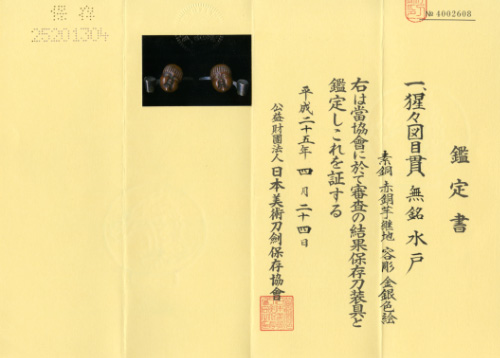 保存
25201304
№ 4002608
鑑定書
一、猩々図目貫 無銘 水戸
素銅 赤銅芋継地 容彫 金銀色絵
右は當協會に於て審査の結果保存刀装具と
鑑定しこれを証する
平成二十五年 四月 二十四日
公益財團法人 日本美術刀劍保存協會